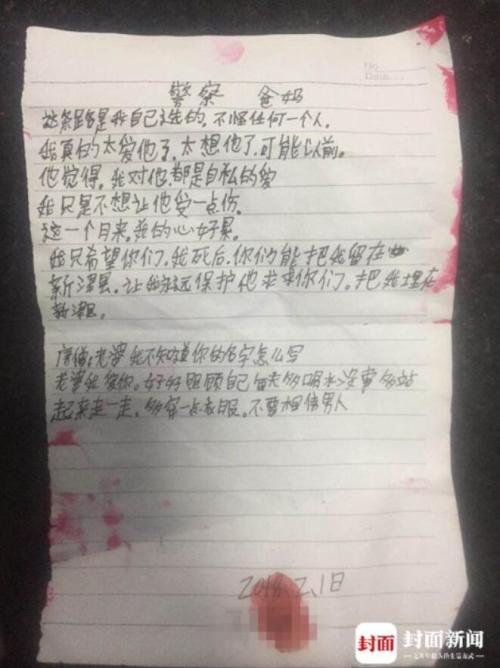 No.
Date.
警察 爸妈
这条路是我自己选的，不怪任何一个人。
我真的太爱他了，太想他了，可能以前。
他觉得，我对他都是自私的爱
我只是不想让他受一点伤。
这一个月来。我的心好累。
我只希望你们，我死后，你们能把我留在
新津县，让我永远保护他求求你们。把我埋在
新津。
老婆我不知道你的名字怎么写
老婆我爱你。好好照顾自己 每天多喝水没事多站
起来走一走，多穿一点衣服。不要相信男人
2018.2.1日
封面 封面新闻